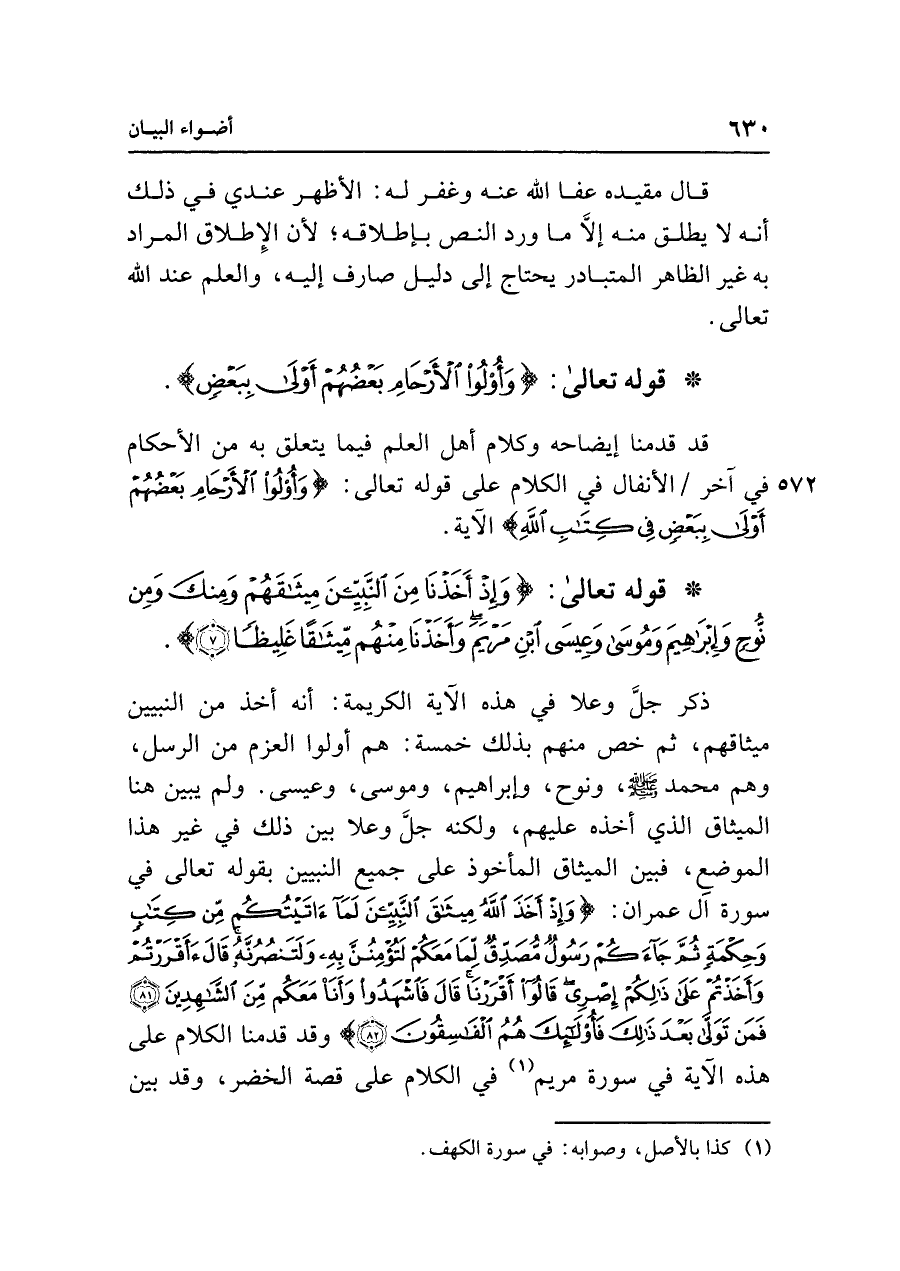 ٦٣٠ أضواء البيان
قال مقيده عفا الله عنه وغفر له: الأظهر عندي في ذلك
أنه لا يطلق منه إلاَّ ما ورد النص بإطلاقه؛ لأن الإِطلاق المراد
به غير الظاهر المتبادر يحتاج إلى دليل صارف إليه، والعلم عند الله
تعالى.
* قوله تعالىٰ: ﴿وَأُوْلُواْ ٱلْأَرْحَامِ بَعْضُهُمْ أَوْلَىٰ بِبَعْضٖ﴾.
قد قدمنا إيضاحه وكلام أهل العلم فيما يتعلق به من الأحكام
٥٧٢ في آخر / الأنفال في الكلام على قوله تعالى: ﴿وَأُوْلُواْ ٱلْأَرْحَامِ بَعْضُهُمْ
أَوْلَىٰ بِبَعْضٖ فِي كِتَٰبِ ٱللَّهِ﴾ الآية.
* قوله تعالىٰ: ﴿وَإِذْ أَخَذْنَا مِنَ ٱلنَّبِيِّـۧنَ مِيثَٰقَهُمْ وَمِنكَ وَمِن
نُّوحٖ وَإِبْرَٰهِيمَ وَمُوسَىٰ وَعِيسَى ٱبْنِ مَرْيَمَۖ وَأَخَذْنَا مِنْهُم مِّيثَٰقًا غَلِيظٗا ٧﴾.
ذكر جلَّ وعلا في هذه الآية الكريمة: أنه أخذ من النبيين
ميثاقهم، ثم خص منهم بذلك خمسة: هم أولوا العزم من الرسل،
وهم محمد ﷺ، ونوح، وإبراهيم، وموسى، وعيسى. ولم يبين هنا
الميثاق الذي أخذه عليهم، ولكنه جلَّ وعلا بين ذلك في غير هذا
الموضع، فبين الميثاق المأخوذ على جميع النبيين بقوله تعالى في
سورة آل عمران: ﴿وَإِذْ أَخَذَ ٱللَّهُ مِيثَٰقَ ٱلنَّبِيِّـۧنَ لَمَآ ءَاتَيْتُكُم مِّن كِتَٰبٖ
وَحِكْمَةٖ ثُمَّ جَآءَكُمْ رَسُولٞ مُّصَدِّقٞ لِّمَا مَعَكُمْ لَتُؤْمِنُنَّ بِهِۦ وَلَتَنصُرُنَّهُۥۚ قَالَ ءَأَقْرَرْتُمْ
وَأَخَذْتُمْ عَلَىٰ ذَٰلِكُمْ إِصْرِيۖ قَالُوٓاْ أَقْرَرْنَاۚ قَالَ فَٱشْهَدُواْ وَأَنَا۠ مَعَكُم مِّنَ ٱلشَّٰهِدِينَ ٨١
فَمَن تَوَلَّىٰ بَعْدَ ذَٰلِكَ فَأُوْلَٰٓئِكَ هُمُ ٱلْفَٰسِقُونَ ٨٢﴾ وقد قدمنا الكلام على
هذه الآية في سورة مريم(١) في الكلام على قصة الخضر، وقد بين
(١) كذا بالأصل، وصوابه: في سورة الكهف.